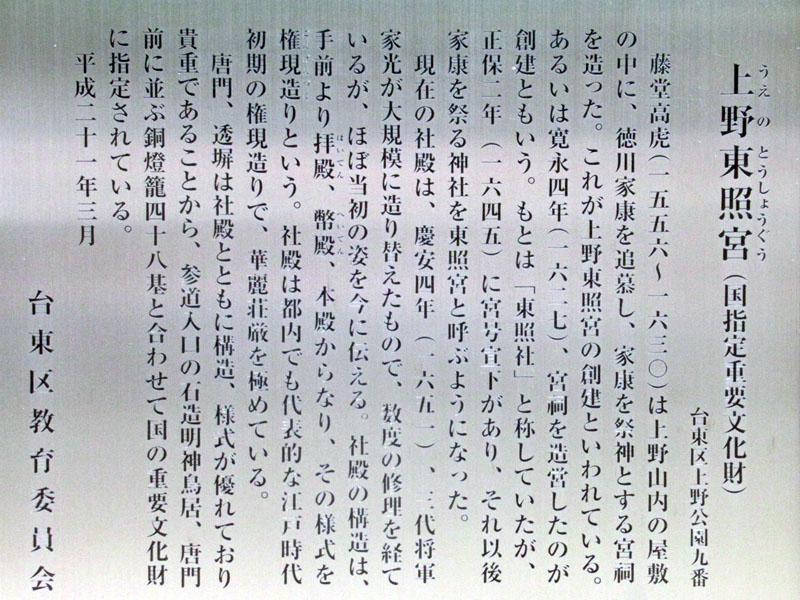 上野東照宮（国指定重要文化財）
うえの とうしょうぐう
台東区上野公園九番
藤堂高虎（一五五六〜一六三〇）は上野山内の屋敷
の中に、徳川家康を追慕し、家康を祭神とする宮祠
を造った。これが上野東照宮の創建といわれている。
あるいは寛永四年（一六二七）、宮祠を造営したのが
創建ともいう。もとは「東照社」と称していたが、
正保二年（一六四五）に宮号宣下があり、それ以後
家康を祭る神社を東照宮と呼ぶようになった。
現在の社殿は、慶安四年（一六五一）、三代将軍
家光が大規模に造り替えたもので、数度の修理を経て
いるが、ほぼ当初の姿を今に伝える。社殿の構造は、
手前より拝殿、幣殿、本殿からなり、その様式を
はいでん へいでん
権現造りという。社殿は都内でも代表的な江戸時代
初期の権現造りで、華麗荘厳を極めている。
唐門、透塀は社殿とともに構造、様式が優れており
貴重であることから、参道入口の石造明神鳥居、唐門
前に並ぶ銅燈籠四十八基と合わせて国の重要文化財
に指定されている。
平成二十一年三月
台東区教育委員会